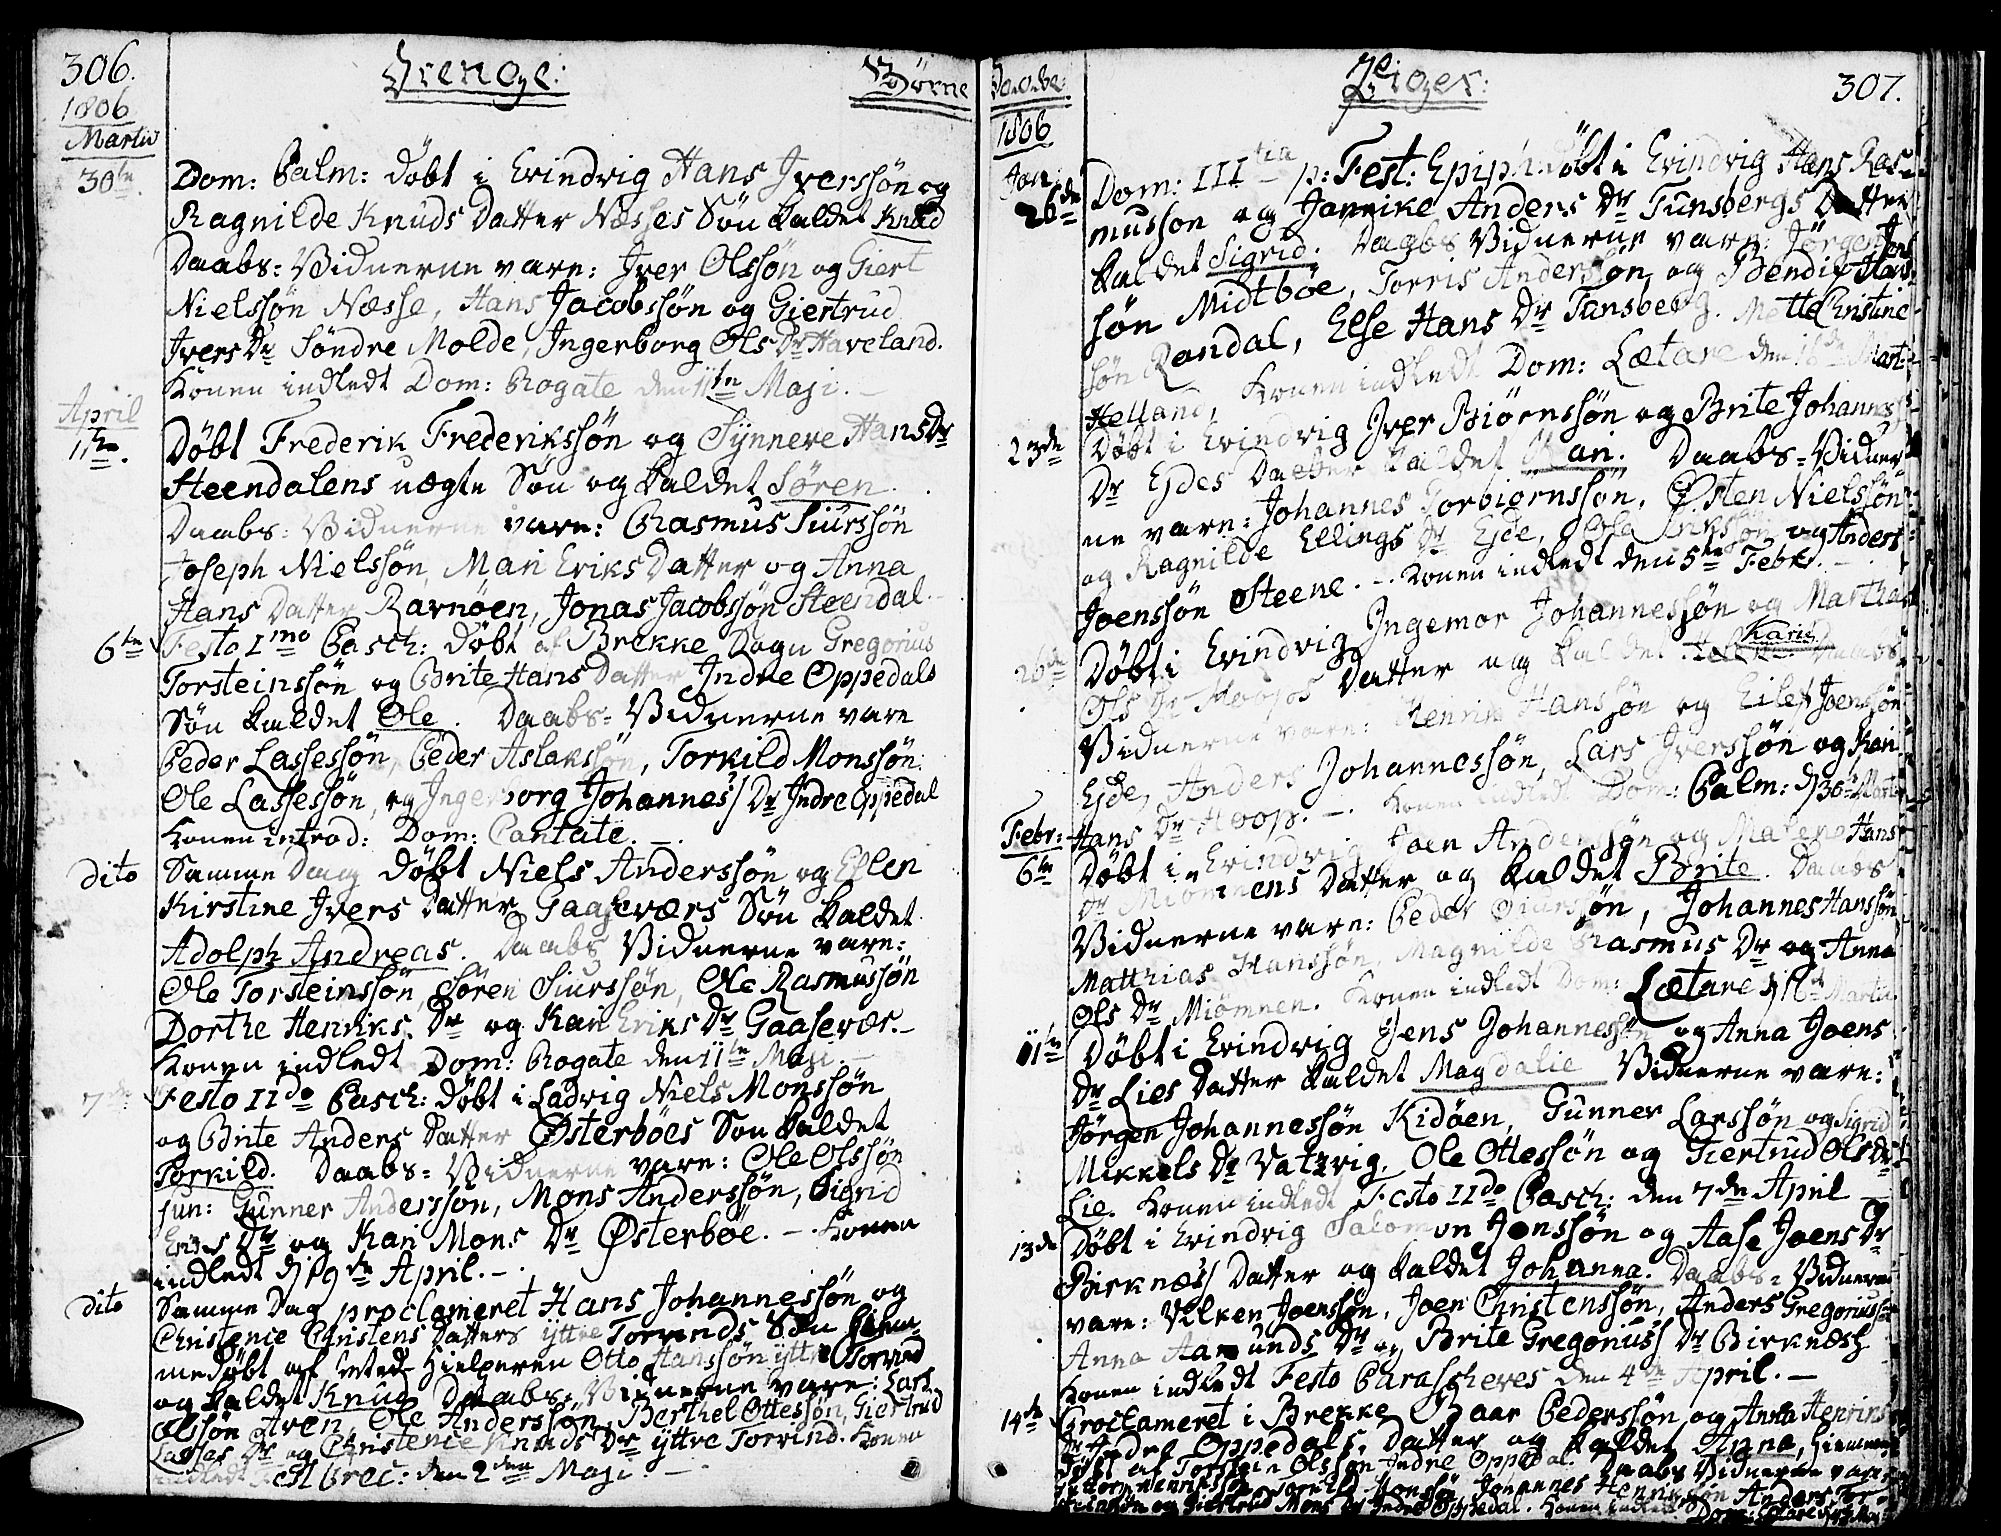 306.
Drenge:
Børne
1806
Martii
30te
Dom: Palm: døbt i Evindvig Hans Iverssøn og
Ragnilde Knuds Datter Næsses Søn kaldet Knud
Daabs=Vidnerne vare: Iver Olssøn og Giert
Nielssøn Næsse, Hans Jacobssøn og Giertrud
Ivers Dr Søndre Molde, Ingerborg Ols Dr Haveland.
Konen indledt Dom: Rogate den 11te Maji.
April
1te.
Døbt Frederik Frederikssøn og Synneve Hans Dr
Steendalens uægte Søn og kaldet Søren.
Daabs=Vidnerne vare: Rasmus Siurssøn
Joseph Nielssøn, Mari Eriks Datter og Anna
Hans Datter Ravnöen, Jonas Jacobssøn Steendal.
6te
Festo Imo Pasch: døbt af Brekke Sogn Gregorius
Torsteinssøn og Brite Hans Datter Indre Oppedals
Søn kaldet Ole. Daabs=Vidnerne vare
Peder Lassessøn, Peder Aslakssøn, Torkild Monssøn
Ole Lassessøn, og Ingerborg Johannes Dr Indre Oppedal
Konen introd: Dom: Cantate.
dito
Samme Dag døbt Niels Anderssøn og Ellen
Kirstine Ivers Datter Gaaseværs Søn kaldet
Adolph Andreas. Daabs Vidnerne vare:
Ole Torsteinssøn, Søren Siurssøn, Ole Rasmussøn
Dorthe Henriks Dr og Kari Eriks Dr Gaasevær.
Konen indledt Dom: Rogate den 11te Maji.
7de
Festo IIdo Pasch: døbt i Ladvig Niels Monssøn
og Brite Anders Datter Østerböes Søn kaldet
Torkild. Daabs=Vidnerne vare: Ole Olssøn
jun: Gunner Anderssøn, Mons Anderssøn, Sigrid
Eriks Dr og Kari Mons Dr Østerböe. Konen
indledt d 19de April.
dito
Samme Dag proclameret Hans Johannessøn og
Christence Christens Datters yttre Torvinds Søn hiem-
medøbt af Hielperen Otto Hanssøn yttre Torvind
og kaldet Knud. Daabs Vidnerne vare: Lars
Olssøn Aven, Ole Anderssøn, Berthel Ottessøn, Giertrud
Lasses Dr og Christence Knuds Dr yttre Torvind. Konen
indledt Fest Prec: den 2den Maji.
Daabe:
Piger:
307.
1806
Jan
26de
Dom: IIItia p: Fest: Epiph: døbt i Evindvig Hans Ras-
mussøn og Jannike Anders Dr Tunsbergs Datter
kaldet Sigrid. Daabs Vidnerne vare: Jörgen Jens
søn Midtböe, Torris Anderssøn, og Bendix Hans
søn Randal, Else Hans Dr Tunsberg. Mette Christine
Helland, Konen indledt Dom: Lætare den 16de Marti
23de
Døbt i Evindvig Iver Biørnssøn og Brite Johannes
Dr Eides Datter kaldet Kari. Daabs=Vidner
ne vare: Johannes Torbiørnssøn, Østen Nielssøn
og Ragnilde Ellings Dr Eide, Ole Erikssøn og Anders
Joenssøn Steene. Konen indledt den 5te Febr.
26de
Døbt i Evindvig Ingemor Johannessøn og Martha
Ols Dr Hoops Datter og kaldet Karie Daabs
Vidnerne vare: Henrik Hanssøn og Eilef Joenssøn
Eide, Anders Johannessøn, Lars Iverssøn og Kari
Hans Dr Hoop. Konen indledt Dom: Palm: d 30te Marti
Febr:
6te
Døbt i Evindvig Joen Anderssøn og Malene Hans
Dr Miömnens Datter og kaldet Brite. Daabs
Vidnerne vare: Peder Siurssøn, Johannes Hanssøn
Matthias Hanssøn, Magnilde Rasmus Dr og Anna
Ols Dr Miömnen. Konen indledt Dom: Lætare d 16de Martii
11te
Døbt i Evindvig Jens Johannessøn og Anna Joens
Dr Lies Datter kaldet Magdalie Vidnerne vare:
Jörgen Johannessøn Kidöen, Gunner Larssøn og Sigrid
Mikkels Dr Vatzvig, Ole Ottessøn og Giertrud Ols Dr
Lie. Konen indledt Festo IIdo Pasch: den 7de April
13de
Døbt i Evindvig Salomon Jonssøn og Aase Joens Dr
Birknæs Datter og kaldet Johanna. Daabs=Vidnerne
vare: Vilken Joenssøn, Joen Christenssøn, Anders Gregoriussøn
Anna Aamunds Dr og Brite Gregorius Dr Birknæs
Konen indledt Festo Parascheves den 4de April.
14de
Proclameret i Brekke Baar Pederssøn og Anna Henriks
Dr Indre Oppedals Datter og kaldet Anna, hiemme
døbt af Torstein Olssøn Indre Oppedal. Daabs Vidnerne vare
Henrikssøn, Torkild Monssøn, Johannes Henrikssøn, Anders Tor-
og Giertrud Mons Dr Indre Oppedal. Konen indledt Dom: